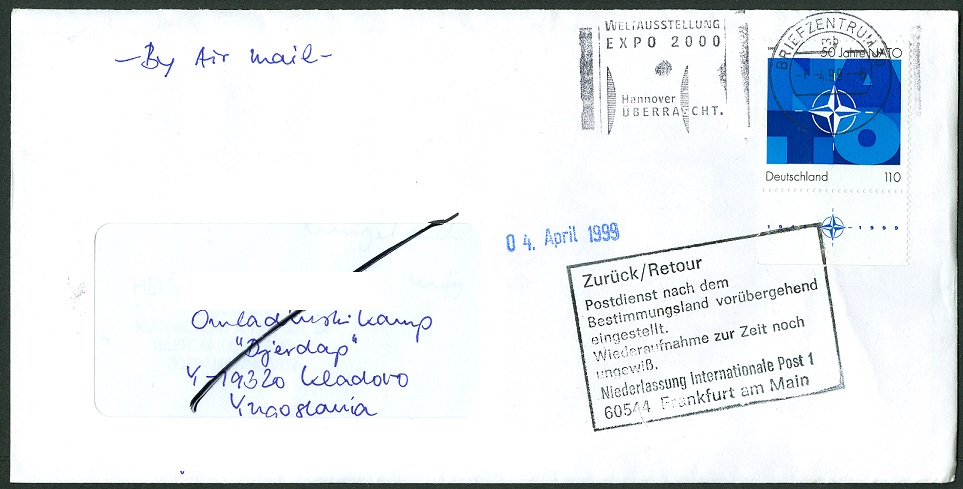 - By Air mail -
WELTAUSSTELLUNG
EXPO 2000
Hannover
ÜBERRASCHT.
BRIEFZENTRUM
50 Jahre NATO
NATO
Deutschland 110
1999
04. April 1999
Zurück/Retour
Postdienst nach dem
Bestimmungsland vorübergehend
eingestellt.
Wiederaufnahme zur Zeit noch
ungewiß.
Niederlassung Internationale Post 1
60544 Frankfurt am Main
Omladinski kamp
"Djerdap"
Y-19320 Kladovo
Yugoslavia